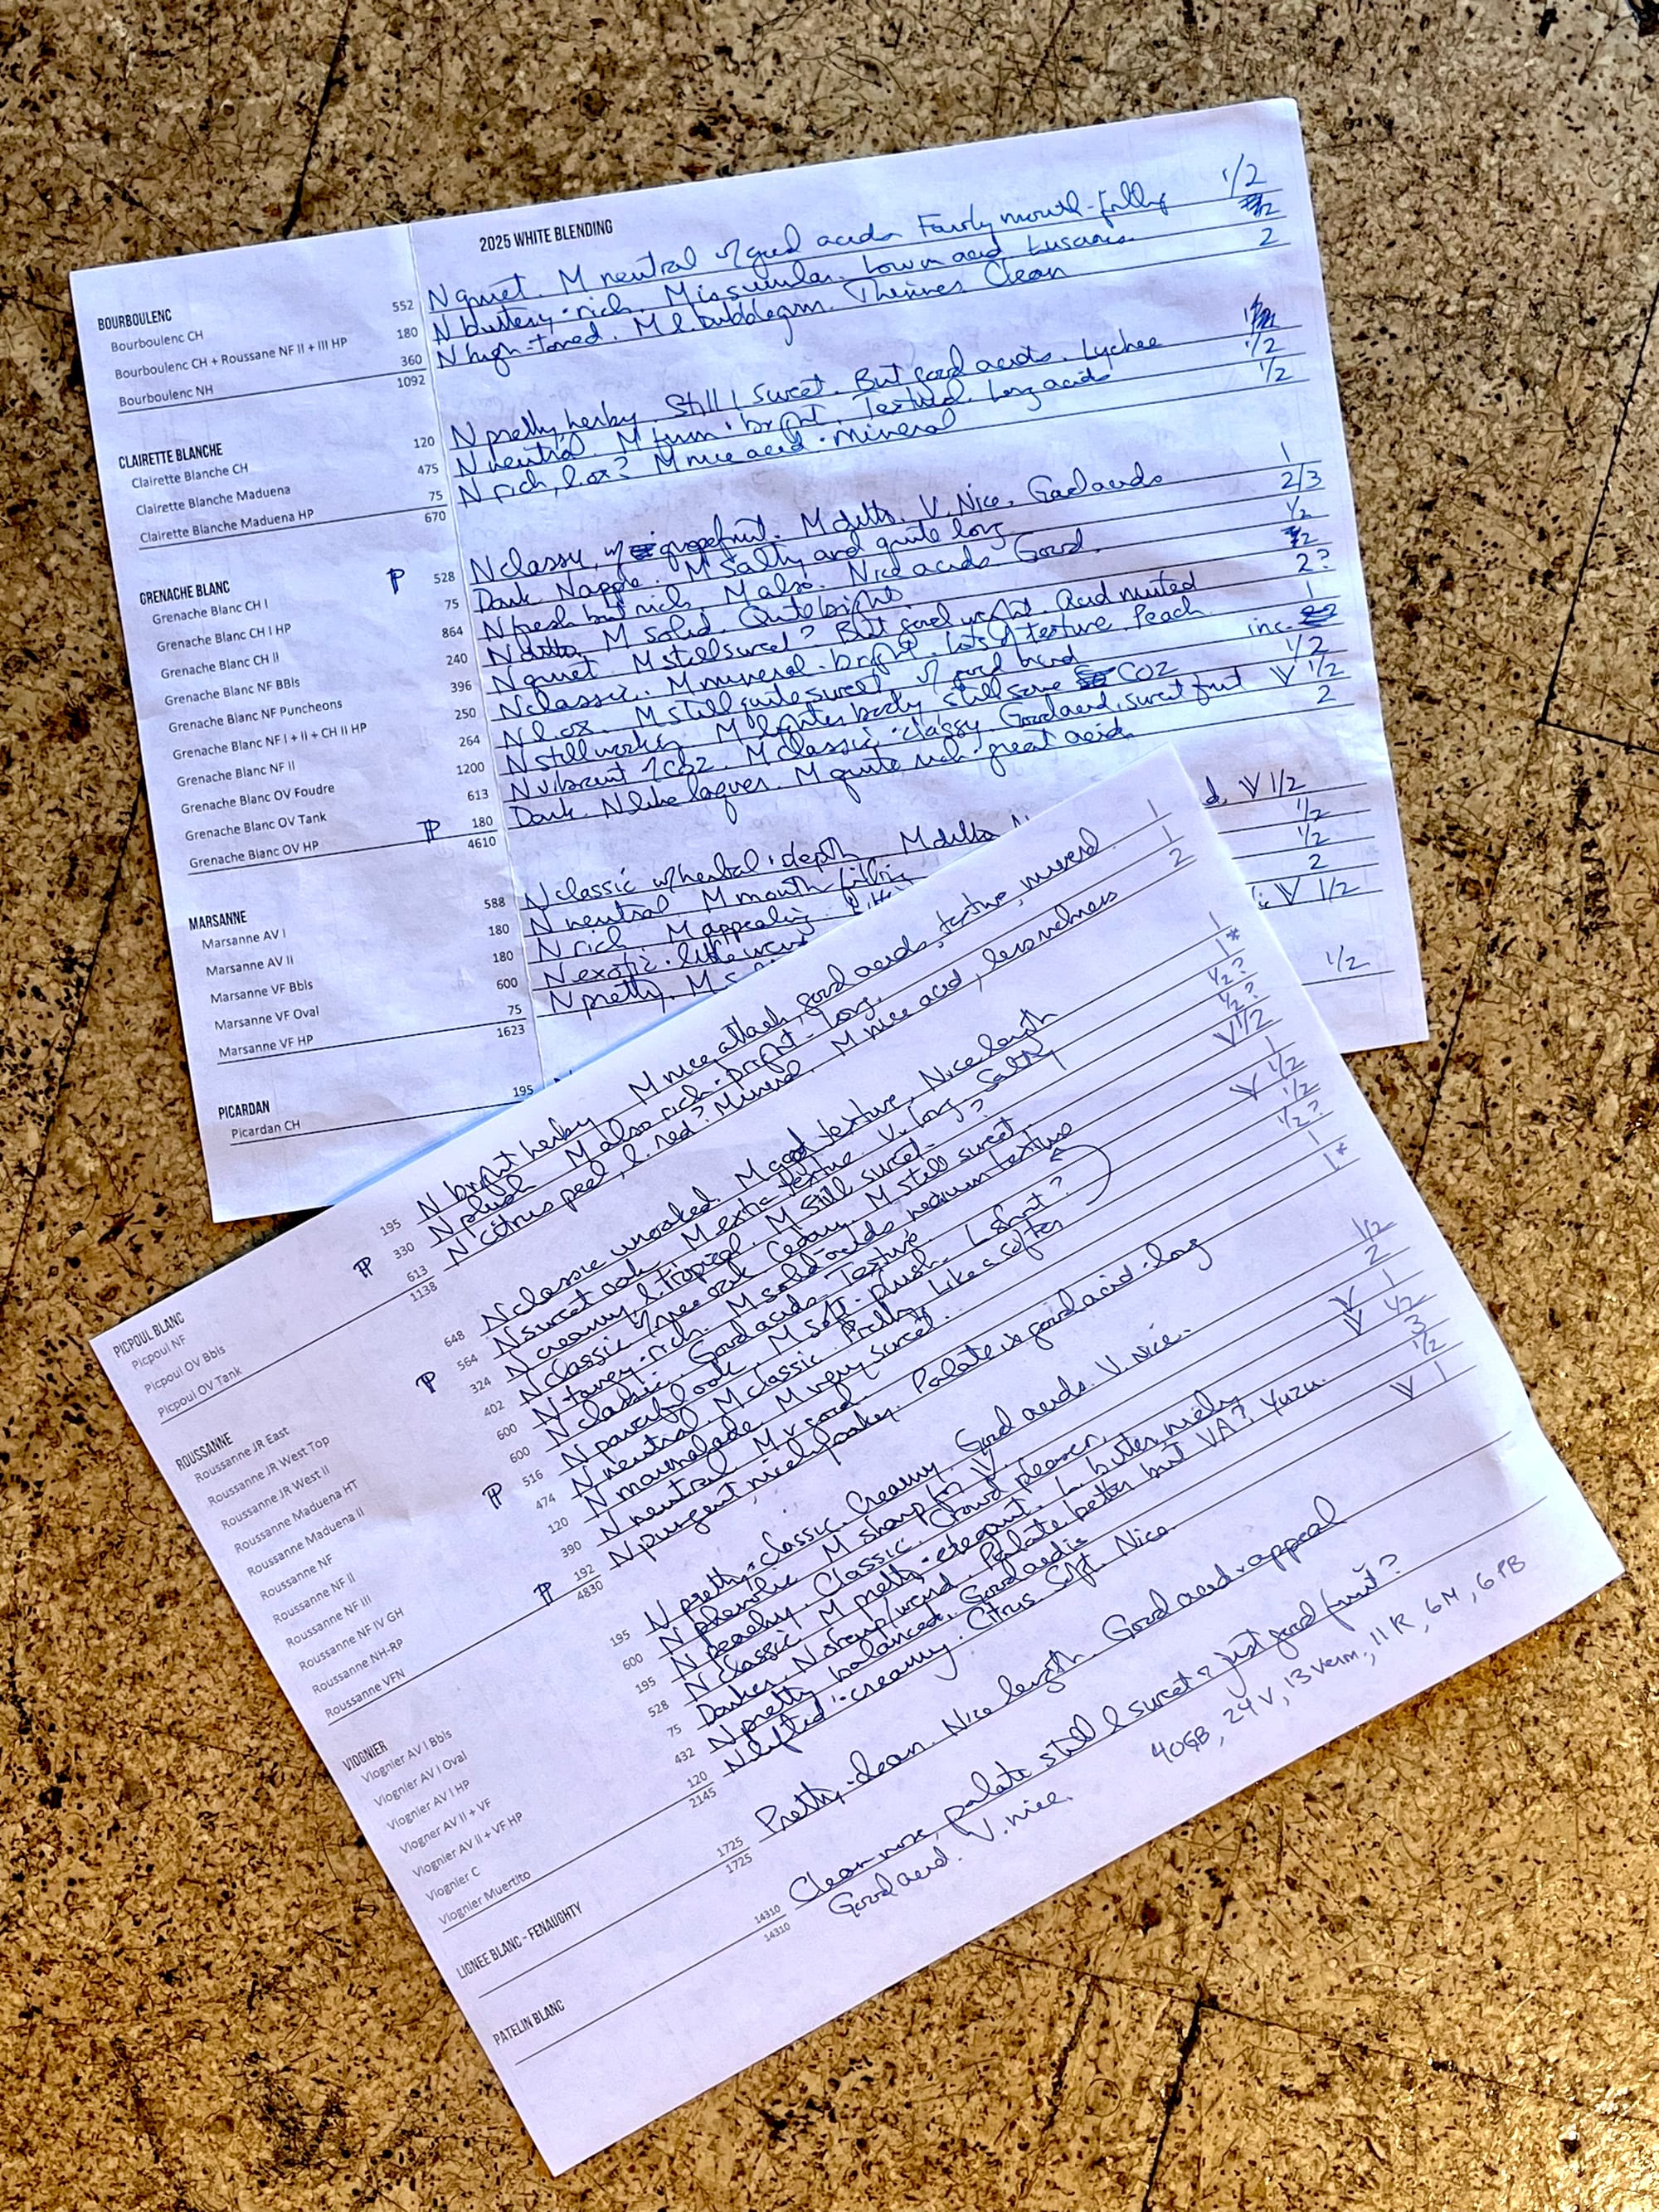 2025 WHITE BLENDING
BOURBOULENC
Bourboulenc CH 552 N quiet. M neutral w/ good acids Fairly mouth-filling 1/2
Bourboulenc CH + Roussane NF II + III HP 180 N buttery · rich. M is similar. Low in acid. 2
Bourboulenc NH 360 N high-toned. M l. bubblegum. Thinnes. Clean 2
1092
CLAIRETTE BLANCHE
Clairette Blanche CH 120 N pretty, herby. Still l sweet. But good acids. Lychee
Clairette Blanche Maduena 475 N neutral. M firm · bright. Textured. Long acids 1/2
Clairette Blanche Maduena HP 75 N rich, l. ox? M nice acid · mineral 1/2
670
GRENACHE BLANC
Grenache Blanc CH I 528 N classy, w/ grapefruit. M ditto. V. Nice. Good acids 1
Grenache Blanc CH I HP 75 Dark. N apple. M salty and quite long 2/3
Grenache Blanc CH II 864 N fresh but rich. M also. Nice acids. Good. 1/2
Grenache Blanc NF BBls 240 N ditto. M solid. Quite bright 2
Grenache Blanc NF Puncheons 396 N quiet. M still sweet? But good weight. Acid muted 2?
Grenache Blanc NF I + II + CH II HP 250 N classic. M mineral · bright. Lots of texture. Peach 1
Grenache Blanc NF II 264 N l. ox. M still quite sweet w/ good inc.
Grenache Blanc OV Foudre 1200 N still working. M lighter body still some CO2 1/2
Grenache Blanc OV Tank 613 N vibrant w/ CO2. M classic · classy. Good acid, sweet fruit V 1/2
Grenache Blanc OV HP 180 Dark. N like laquer. M quite rich · great acids 2
4610
MARSANNE
Marsanne AV I 588 N classic w/ herbal · depth M ditto V 1/2
Marsanne AV II 180 N neutral. M mouth filling 1/2
Marsanne VF Bbls 180 N rich. M appealing. 1/2
Marsanne VF Oval 600 N exotic · little 2
Marsanne VF HP 75 N pretty. M V 1/2
1623
PICARDAN
Picardan CH 195 1/2
PICPOUL BLANC
Picpoul NF 195 N bright herby. M nice attack, good acids, texture, mineral. 1
Picpoul OV Bbls 330 N plush M also rich · bright · long. 1
Picpoul OV Tank 613 N citrus peel, l. red? Mineral. M nice acid, less richness 2
1138
ROUSSANNE
Roussanne JR East 648 N classic unoaked. M good texture, Nice length 1
Roussanne JR West Top 564 N sweet oak, M extra texture. V. long. Salty 1*
Roussanne JR West II 324 N creamy l. tropical. M still sweet? 1/2?
Roussanne Maduena HT 402 N classic w/ new oak cedary. M still sweet. 1/2?
Roussanne Maduena II 600 N · rich. M solid · acids medium texture V 1/2
Roussanne NF 600 N classic. Good acids. Texture. 1
Roussanne NF II 516 N powerful oak, M soft · plush. L short? V 1/2
Roussanne NF III 474 N neutral. M classic. Pretty. Like a softer 1/2
Roussanne NF IV GH 120 N marmalade. M very sweet. 1/2?
Roussanne NH-RP 390 N neutral. M v good. 1
Roussanne VFN 192 N pungent nicely oaky. Palate is good acid · long 1*
4830
VIOGNIER
Viognier AV I Bbls 195 N pretty · classic. Creamy. Good acids. V. nice. 1/2
Viognier AV I Oval 600 N phenolic M sharp for V. 2
Viognier AV I HP 195 N peachy. Classic. Crowd pleaser. V 1
Viogner AV II + VF 528 N classic M pretty · elegant. L. bitter, nicely V 1/2
Viognier AV II + VF HP 75 Darker. N weird. Palate better but VA? Yuzu. 3
Viognier C 432 N pretty balanced. Good acids 1/2
Viognier Muertito 120 N lifted · creamy. Citrus. Soft. Nice. V 1
2145
LIGNEE BLANC - FENAUGHTY 1725 Pretty · clean. Nice length. Good acid · appeal
1725
PATELIN BLANC 14310 Clean nose, palate still l sweet or just good fruit?
14310 Good acid. V. nice.
40GB, 24V, 13 Verm., 11R, 6M, 6PB